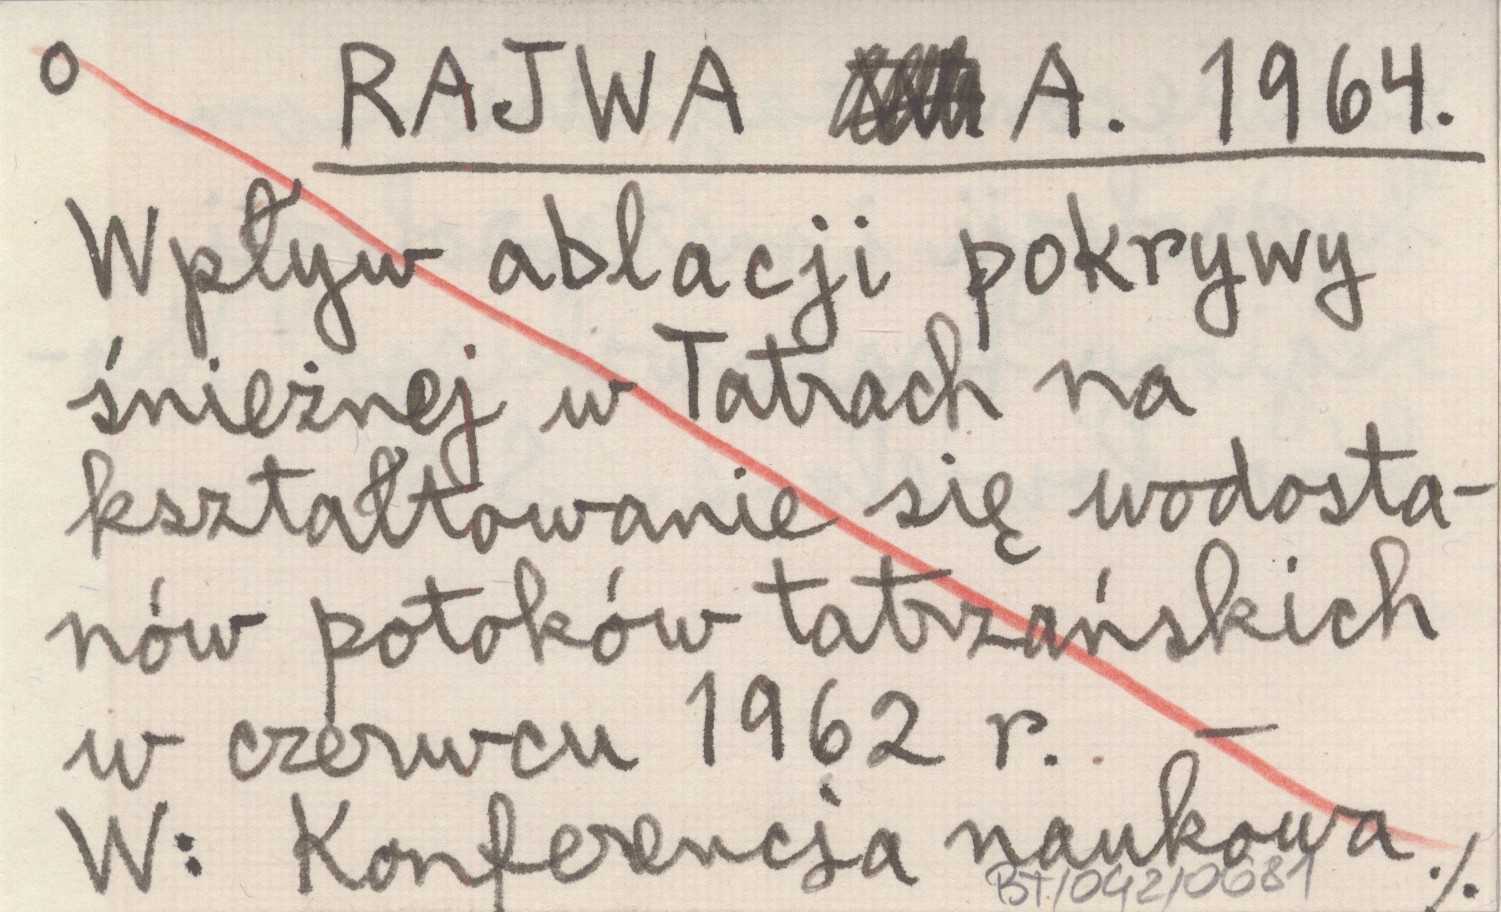 o RAJWA A. 1964.
Wpływ ablacji pokrywy
śnieżnej w Tatrach na
kształtowanie się wodosta-
nów potoków tatrzańskich
w czerwcu 1962 r. —
W: Konferencja naukowa ./.
BT/042/0681